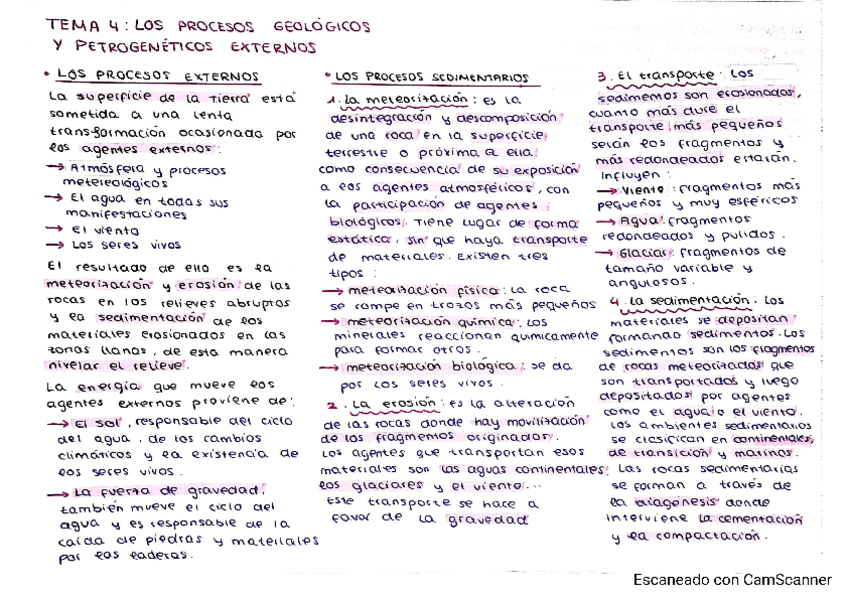 TEMA 4: LOS PROCESOS GEOLÓGICOS
Y PETROGENÉTICOS EXTERNOS
• LOS PROCESOS EXTERNOS
La superficie de la Tierra está
sometida a una lenta
transformación ocasionada por
los agentes externos:
→ Atmósfera y procesos
metereológicos
→ El agua en todas sus
manifestaciones
→ El viento
→ Los seres vivos
El resultado de ello es la
meteorización y erosión de las
rocas en los relieves abruptos
y la sedimentación de los
materiales erosionados en las
zonas llanas, de esta manera
nivelar el relieve.
La energía que mueve los
agentes externos proviene de:
→ El sol, responsable del ciclo
del agua, de los cambios
climáticos y la existencia de
los seres vivos.
→ La fuerza de gravedad,
también mueve el ciclo del
agua y es responsable de la
caída de piedras y materiales
por las laderas.
• LOS PROCESOS SEDIMENTARIOS
1. La meteorización: es la
desintegración y descomposición
de una roca en la superficie
terrestre o próxima a ella
como consecuencia de su exposición
a los agentes atmosféricos, con
la participación de agentes
biológicos. Tiene lugar de forma
estática, sin que haya transporte
de materiales. Existen tres
tipos:
→ meteorización física: la roca
se rompe en trozos más pequeños
→ meteorización química: los
minerales reaccionan quimicamente
para formar otros.
→ meteorización biológica: se da
por los seres vivos.
2. La erosión: es la alteración
de las rocas donde hay movilización
de los fragmentos originados.
Los agentes que transportan esos
materiales son las aguas continentales,
los glaciares y el viento...
Este transporte se hace a
favor de la gravedad
3. El transporte: Los
sedimentos son erosionados,
cuanto más dure el
transporte, más pequeños
serán los fragmentos y
más redondeados estarán.
Influyen:
→ Viento: fragmentos más
pequeños y muy esféricos
→ Agua: fragmentos
redondeados y pulidos.
→ Glaciar: fragmentos de
tamaño variable y
angulosos.
4. La sedimentación: Los
materiales se depositan
formando sedimentos. Los
sedimentos son los fragmentos
de rocas meteorizados que
son transportados y luego
depositados por agentes
como el agua o el viento.
Los ambientes sedimentarios
se clasifican en continentales,
de transición y marinos.
Las rocas sedimentarias
se forman a través de
la diagénesis donde
interviene la cementación
y la compactación.
Escaneado con CamScanner